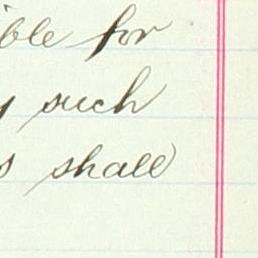 ible for
y such
s shall